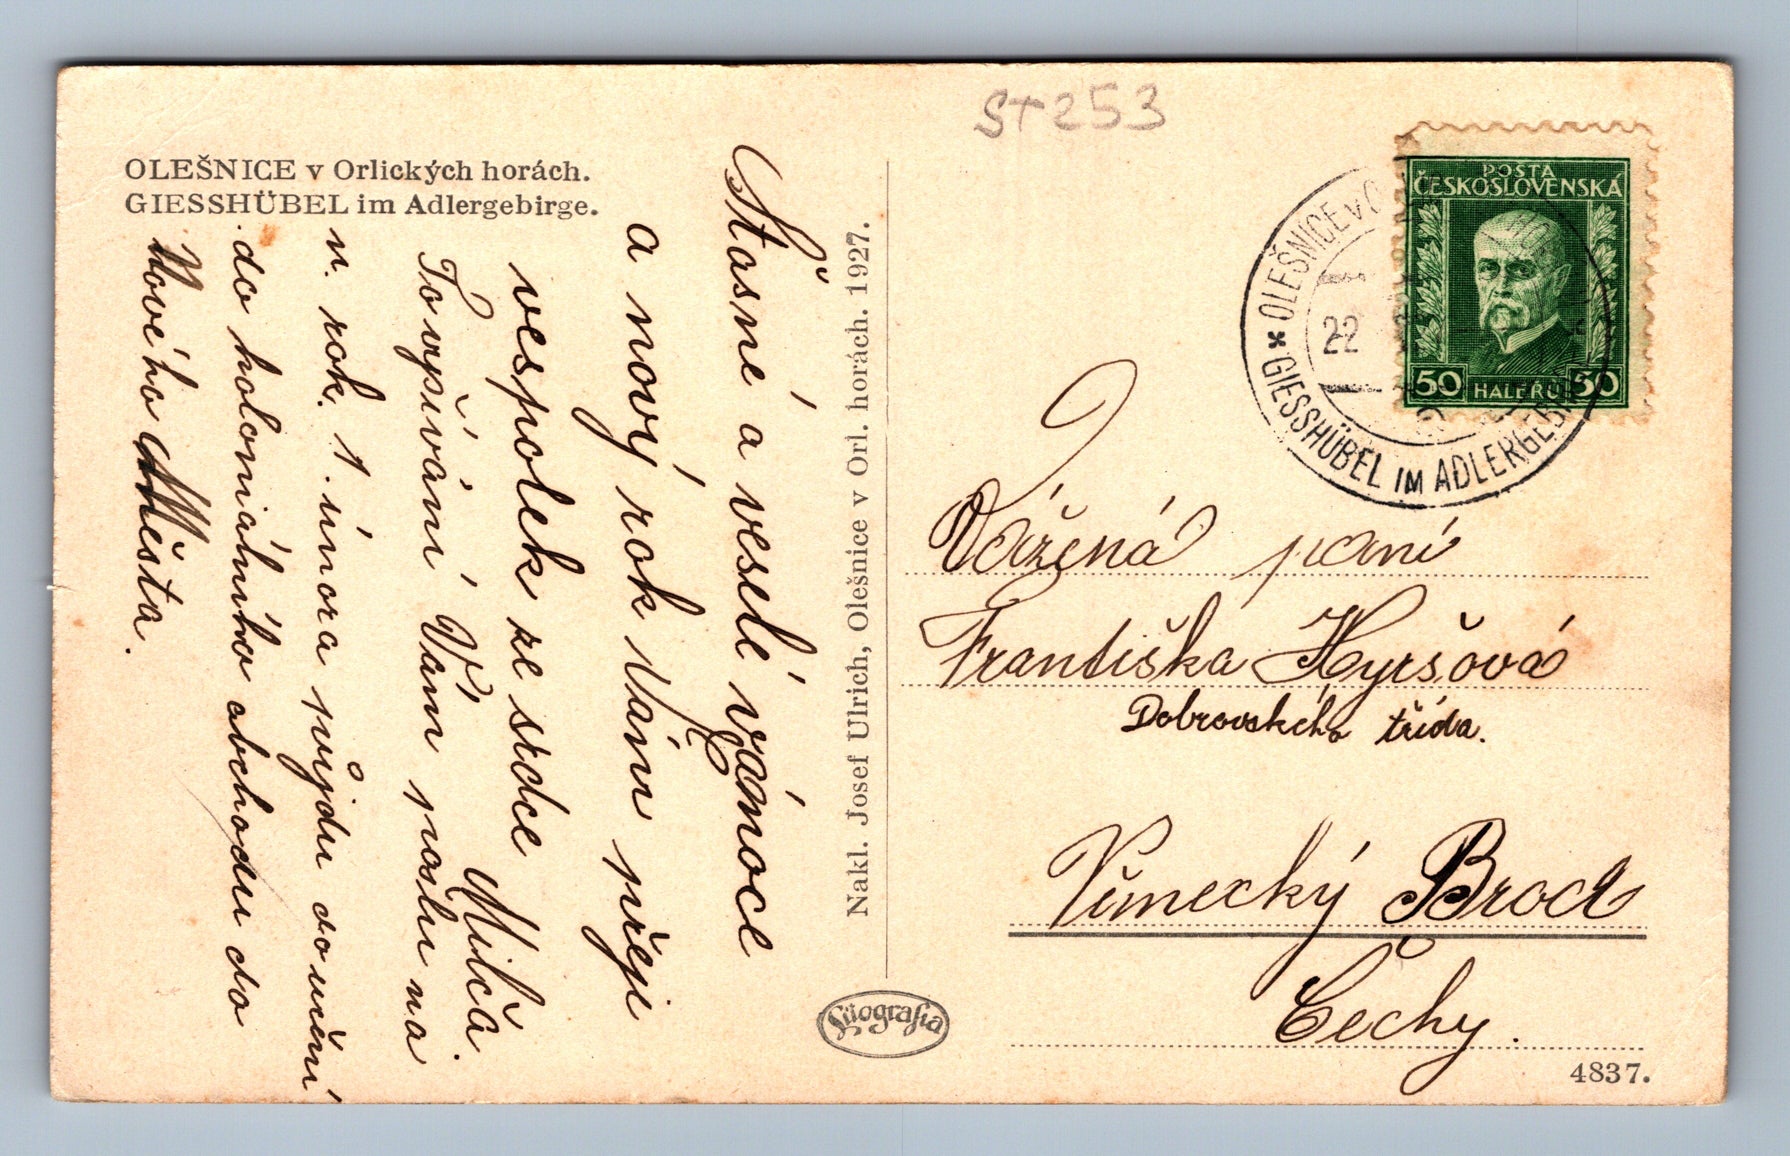 ST253
OLEŠNICE v Orlických horách.
GIESSHÜBEL im Adlergebirge.
Šťasné a veselé vánoce
a nový rok Vám přeji
vespolek ze sdce
Milča.
To vyšívání Vám pošlu na
n. rok. 1. února půjdu do učení
do koloniálního obchodu do
Nového Města.
Nakl. Josef Ulrich, Olešnice v Orl. horách. 1927.
POŠTA
ČESKOSLOVENSKÁ
50 HALÉŘŮ 50
OLEŠNICE v O
22
* GIESSHÜBEL IM ADLERGEB
Vážená paní
Františka Hyršová
Dobrovského třída.
Německý Brod
Čechy.
Litografia
4837.